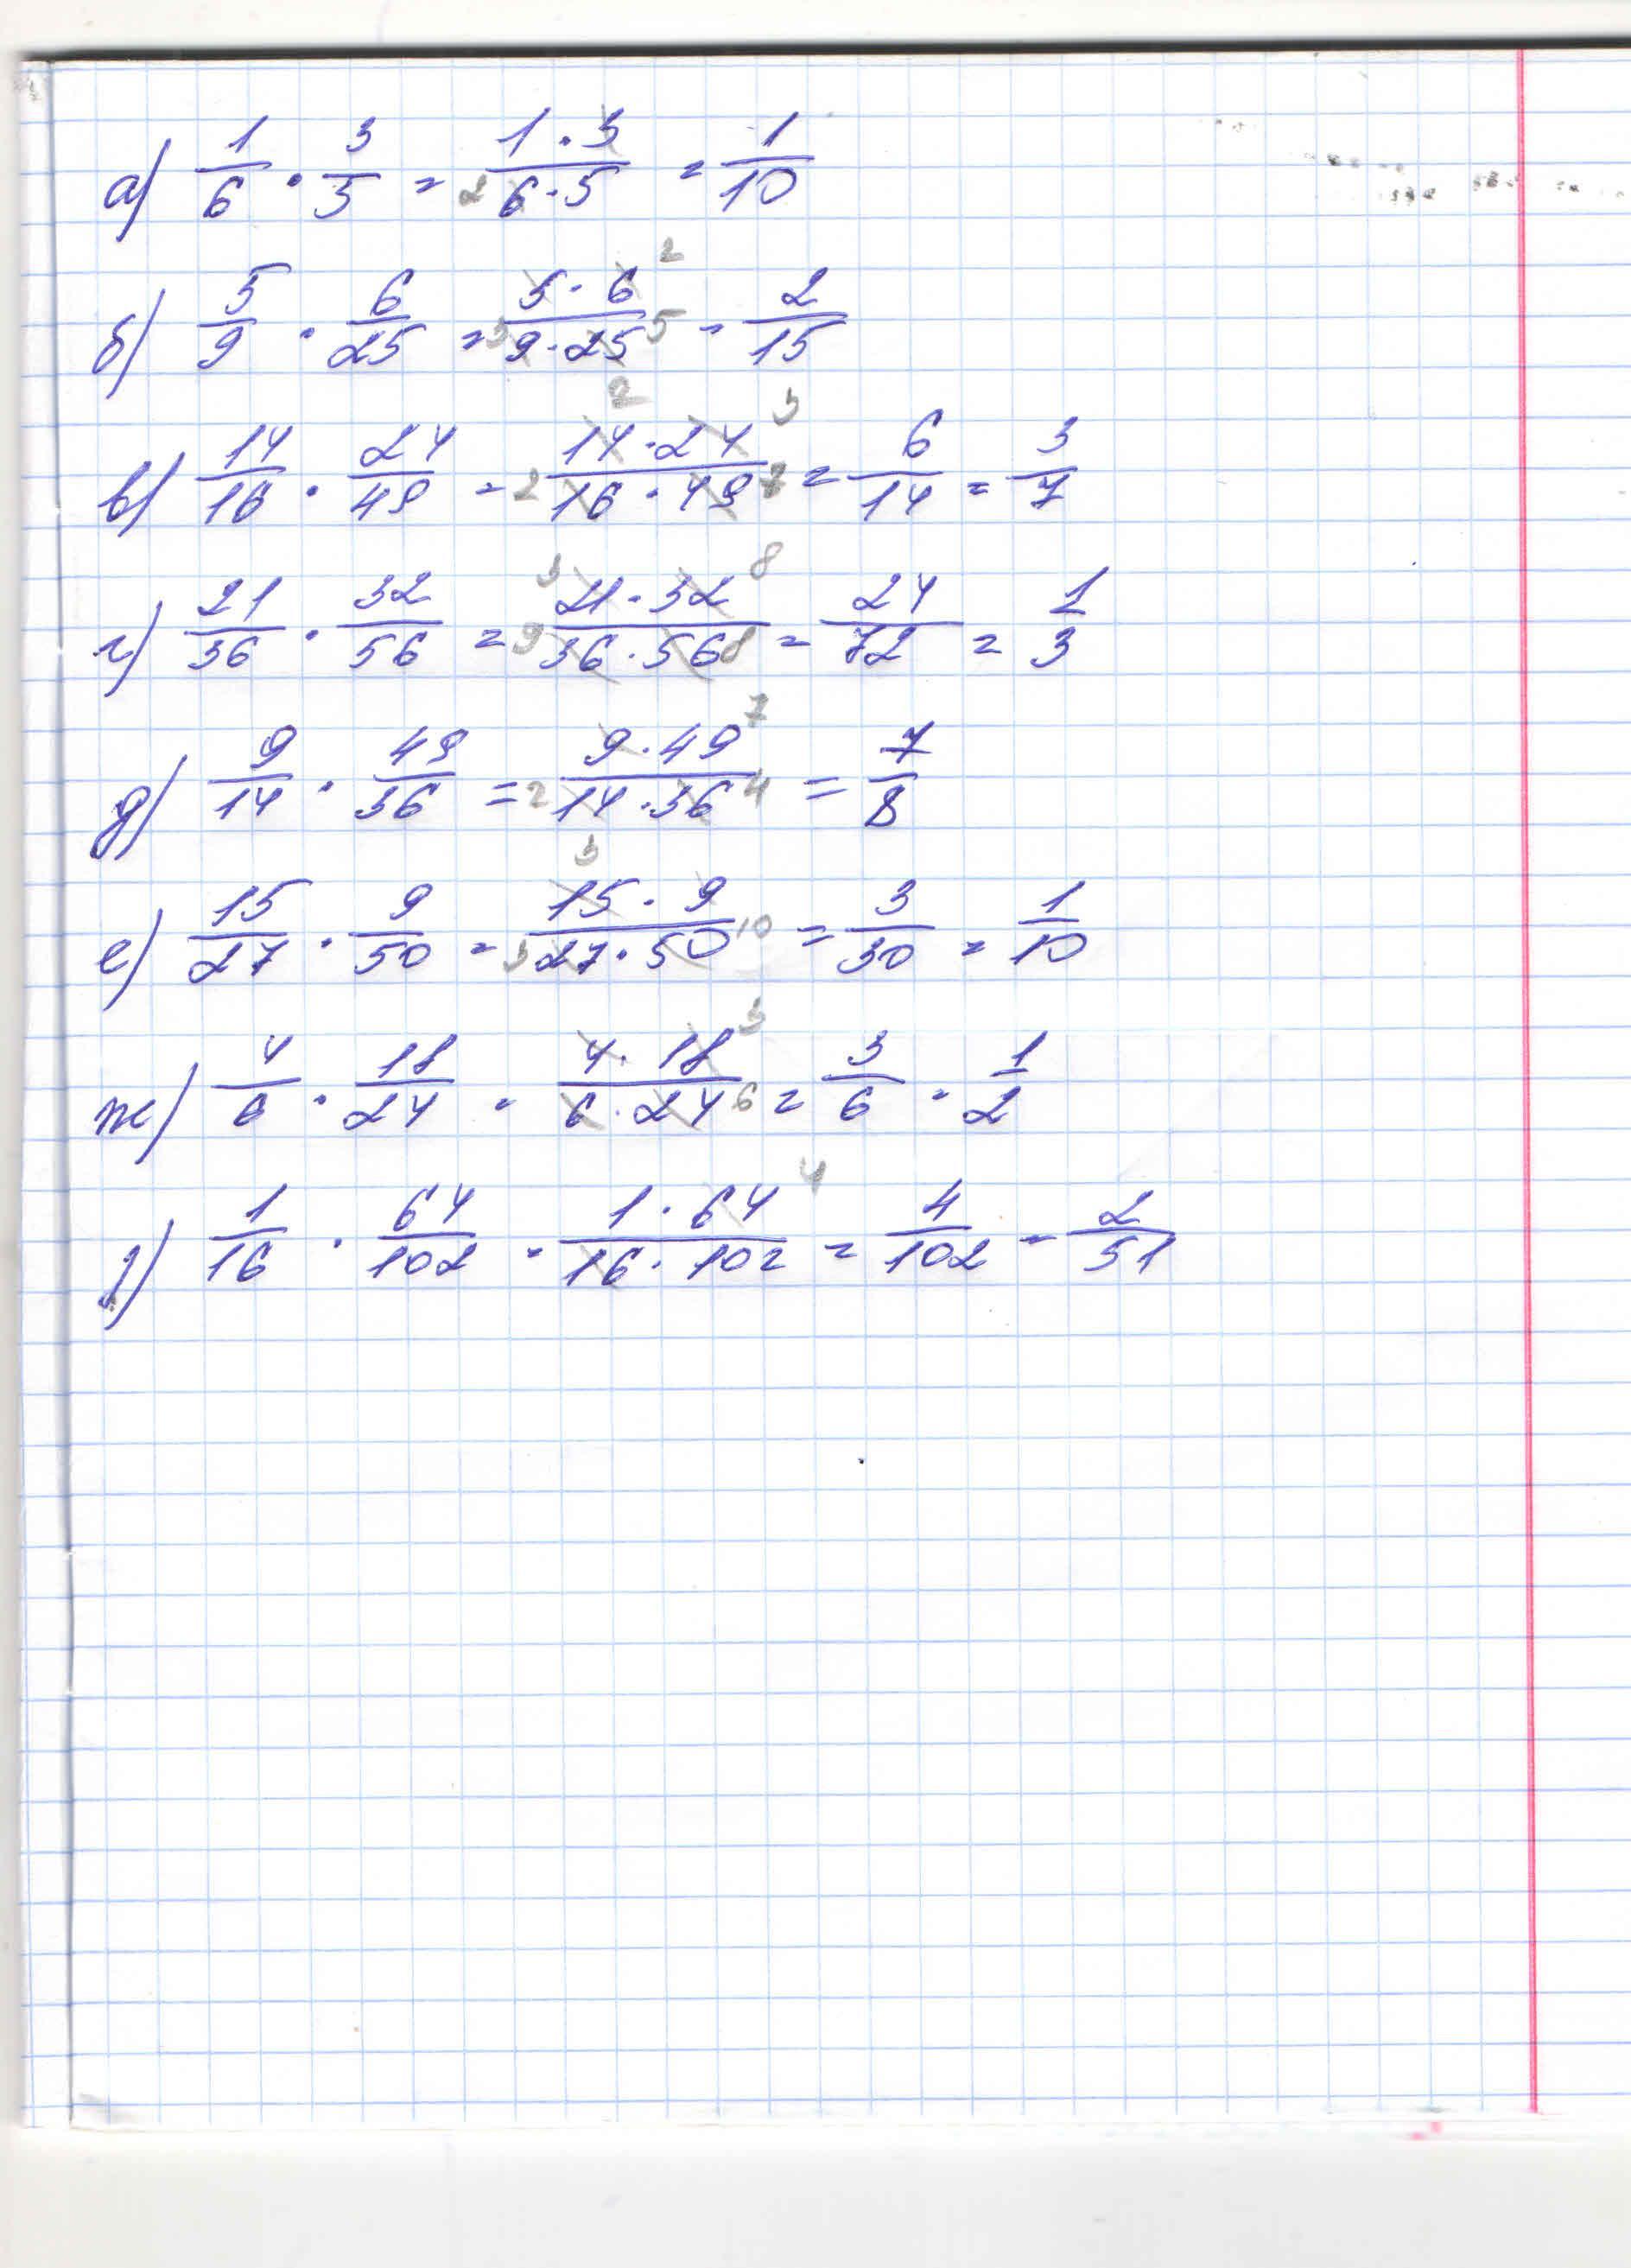 а) 1/6 · 3/5 = 1·3/6·5 2 = 1/10
б) 5/9 · 6/25 = 5·6/9·25 2 3 5 = 2/15
в) 14/16 · 24/49 = 14·24/16·49 2 3 2 7 = 6/14 = 3/7
г) 21/36 · 32/56 = 21·32/36·56 3 8 9 8 = 24/72 = 1/3
д) 9/14 · 49/36 = 9·49/14·36 7 2 4 = 7/8
е) 15/27 · 9/50 = 15·9/27·50 3 3 10 = 3/30 = 1/10
ж) 4/6 · 18/24 = 4·18/6·24 3 6 = 3/6 = 1/2
з) 1/16 · 64/102 = 1·64/16·102 4 = 4/102 = 2/51